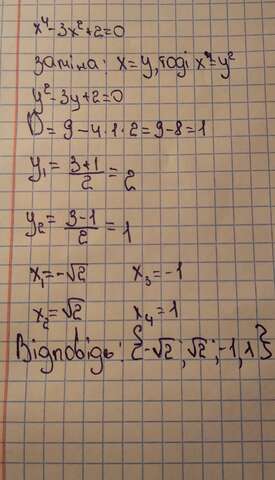 x⁴-3x²+2=0
заміна: x=y, тоді x⁴=y²
y²-3y+2=0
D=9-4·1·2=9-8=1
y₁=(3+1)/2=2
y₂=(3-1)/2=1
x₁=-√2 x₃=-1
x₂=√2 x₄=1
Відповідь: {-√2; √2; -1; 1}